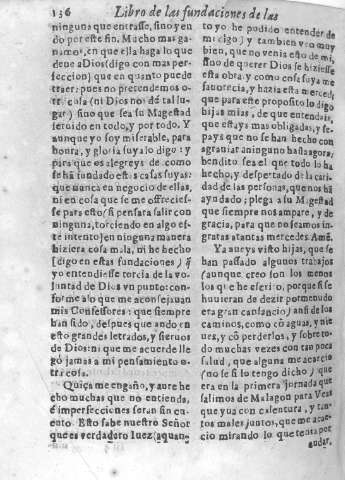 136 Libro de las fundaciones de las
ninguna que entrasse, sino yen
do por este fin. Mucho mas ga-
namos, en que ella haga lo que
deue a Dios (digo con mas per-
feccion) que en quanto puede
traer: pues no pretendemos o-
tra cosa (ni Dios no dé tal lu-
gar) sino que sea su Magestad
seruido en todo, y por todo. Y
aunque yo soy miserable, para
honra, y gloria suya lo digo: y
para que os alegreys de como
se há fundado estas casas suyas:
que nunca en negocio de ellas,
ni en cosa que se me ofreciess-
se para esto (si pensara salir con
ninguna, torciendo en algo es-
te intento) en ninguna manera
hiziera cosa mala, ni he hecho
[digo en estas fundaciones] q̃
yo entendiesse torcia de la vo-
luntad de Dios vn punto: con-
forme a lo que me aconsejauan
mis Confessores: que siempre
han sido, despues que ando en
esto grandes letrados, y sieruos
de Dios: ni que me acuerde lle
gò jamas a mi pensamiento o-
tra cosa.
Quiça me engaño, y aure he
cho muchas que no entienda,
é imperfecciones seran sin cu-
ento. Esto sabe nuestro Señor
que es verdadero Iuez (a quan-
to yo he podido entender de
mi digo) y tambien veo muy
bien, que no venia esto de mi,
sino de querer Dios se hiziesse
esta obra, y como cosa suya me
fauorecia, y hazia esta merced
que para este proposito lo digo
hijas mias, de que entendais,
que estays mas obligadas, y se-
pays que no se han hecho con
agrauiar a ninguno hasta agora:
bendito sea el que todo lo ha
hecho, y despertado de la cari-
dad de las personas, que nos hã
ayudado; plega a su Magestad
que siempre nos ampare, y dé
gracia, para que no seamos in-
gratas a tantas mercedes. Amẽ.
Ya aureys visto hijas, que se
han passado algunos trabajos
(aunque creo son los menos
los que he escrito, porque si se
huuieran de dezir por menudo
era gran cansancio) ansi de los
caminos, como cõ aguas, y nie-
ues, y cõ perderlos, y sobre to-
do muchas vezes con tan poca
salud, que alguna me acaecio
(no sé si lo tengo dicho) que
era en la primera jornada que
salimos de Malagon para Veas
que yua con calentura, y tan-
tos males juntos, que me acae-
cio mirando lo que tenia por
andar,